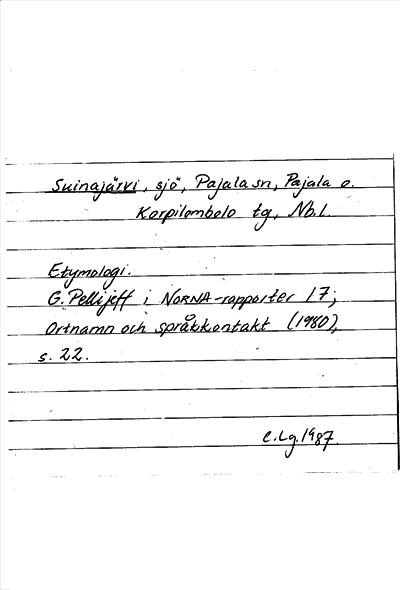 Suinajärvi, sjö, Pajala sn, Pajala o.
Korpilombolo tg, Nb.l.
Etymologi.
G. Pellijeff i NORNA-rapporter 17,
Ortnamn och språkkontakt (1980),
s. 22.
C.Lg. 1987.